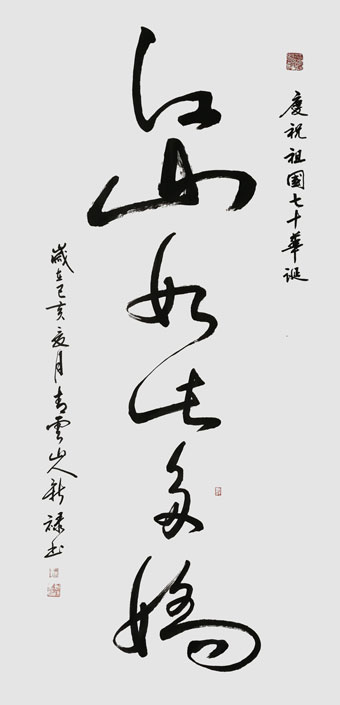 慶祝祖國七十華誕
江山如此多嬌
歲在己亥夏月青雲山人新禄书